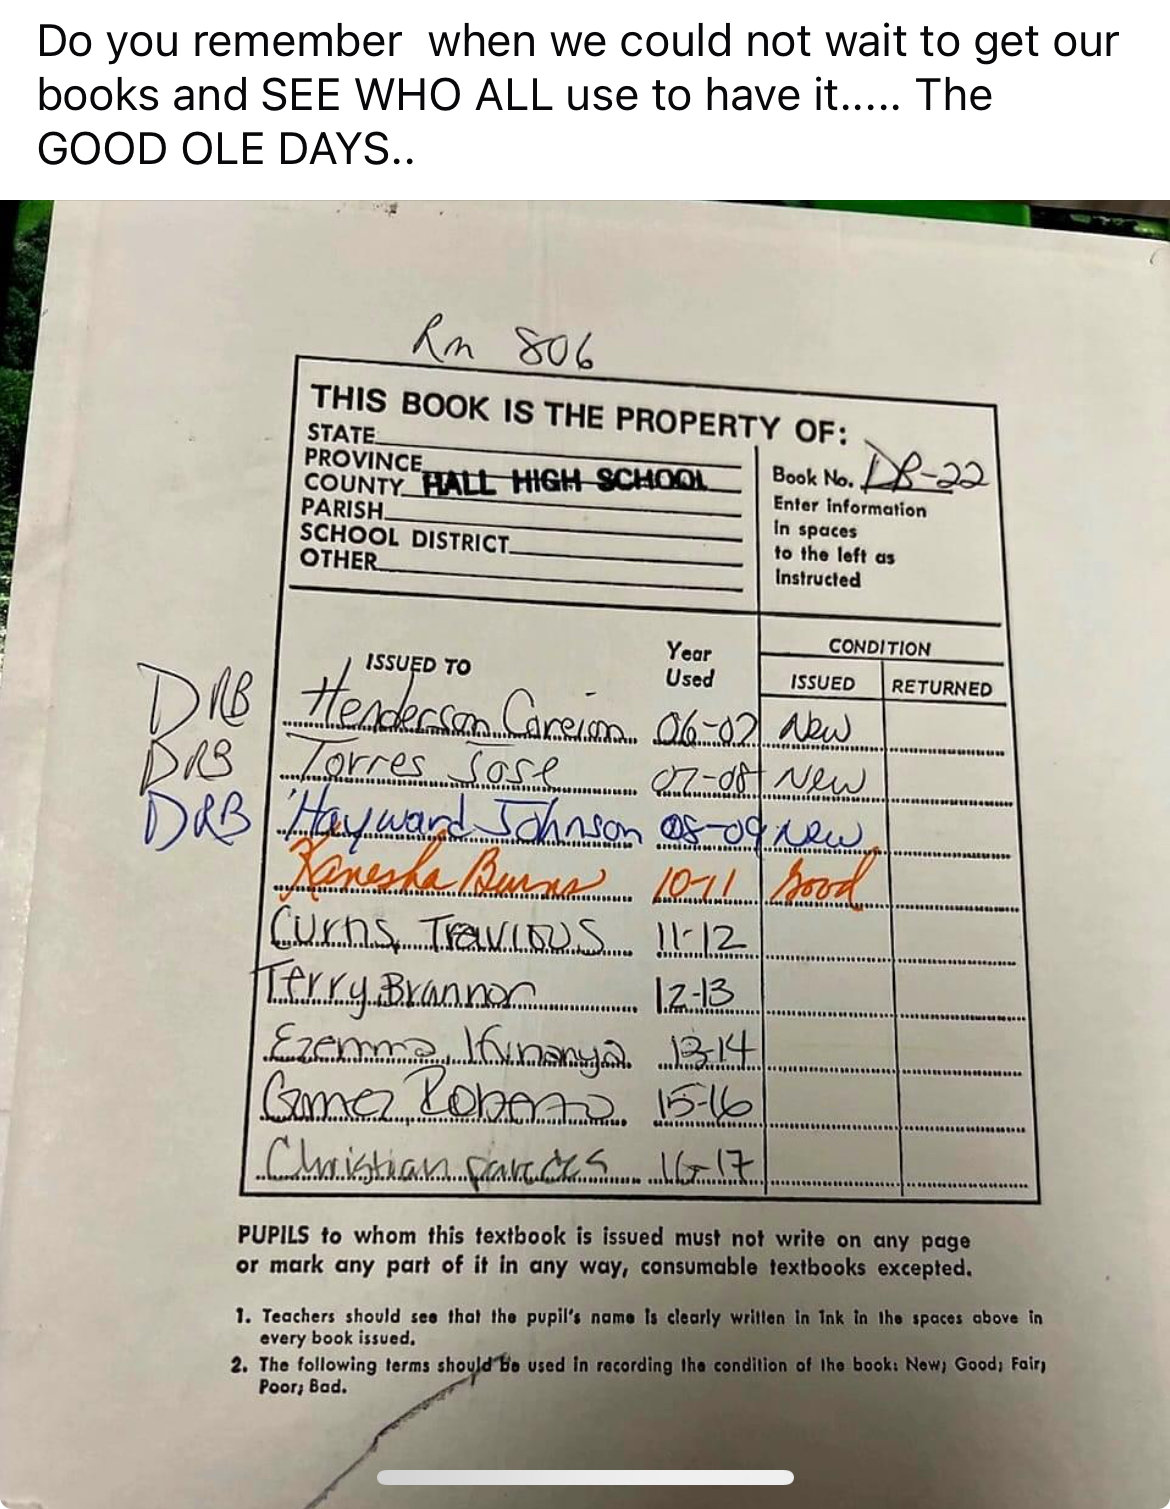 Do you remember  when we could not wait to get our
books and SEE WHO ALL use to have it..... The
GOOD OLE DAYS..
Rm 806
THIS BOOK IS THE PROPERTY OF:
STATE
PROVINCE
COUNTY HALL HIGH SCHOOL
PARISH
SCHOOL DISTRICT
OTHER
Book No. DR-22
Enter information
in spaces
to the left as
instructed
ISSUED TO
Year
Used
CONDITION
ISSUED RETURNED
DRB Henderson Careion 06-07 New
DRB Torres Jose 07-08 New
DRB Hayward Johnson 08-09 New
Kanesha Burns 10-11 Good
Curns, Travious 11-12
Terry, Brannon 12-13
Ezemma, Ifunanya 13-14
Gamez Roberto 15-16
Christian paredes 16-17
PUPILS to whom this textbook is issued must not write on any page
or mark any part of it in any way, consumable textbooks excepted.
1. Teachers should see that the pupil's name is clearly written in ink in the spaces above in
every book issued.
2. The following terms should be used in recording the condition of the book: New; Good; Fair;
Poor; Bad.